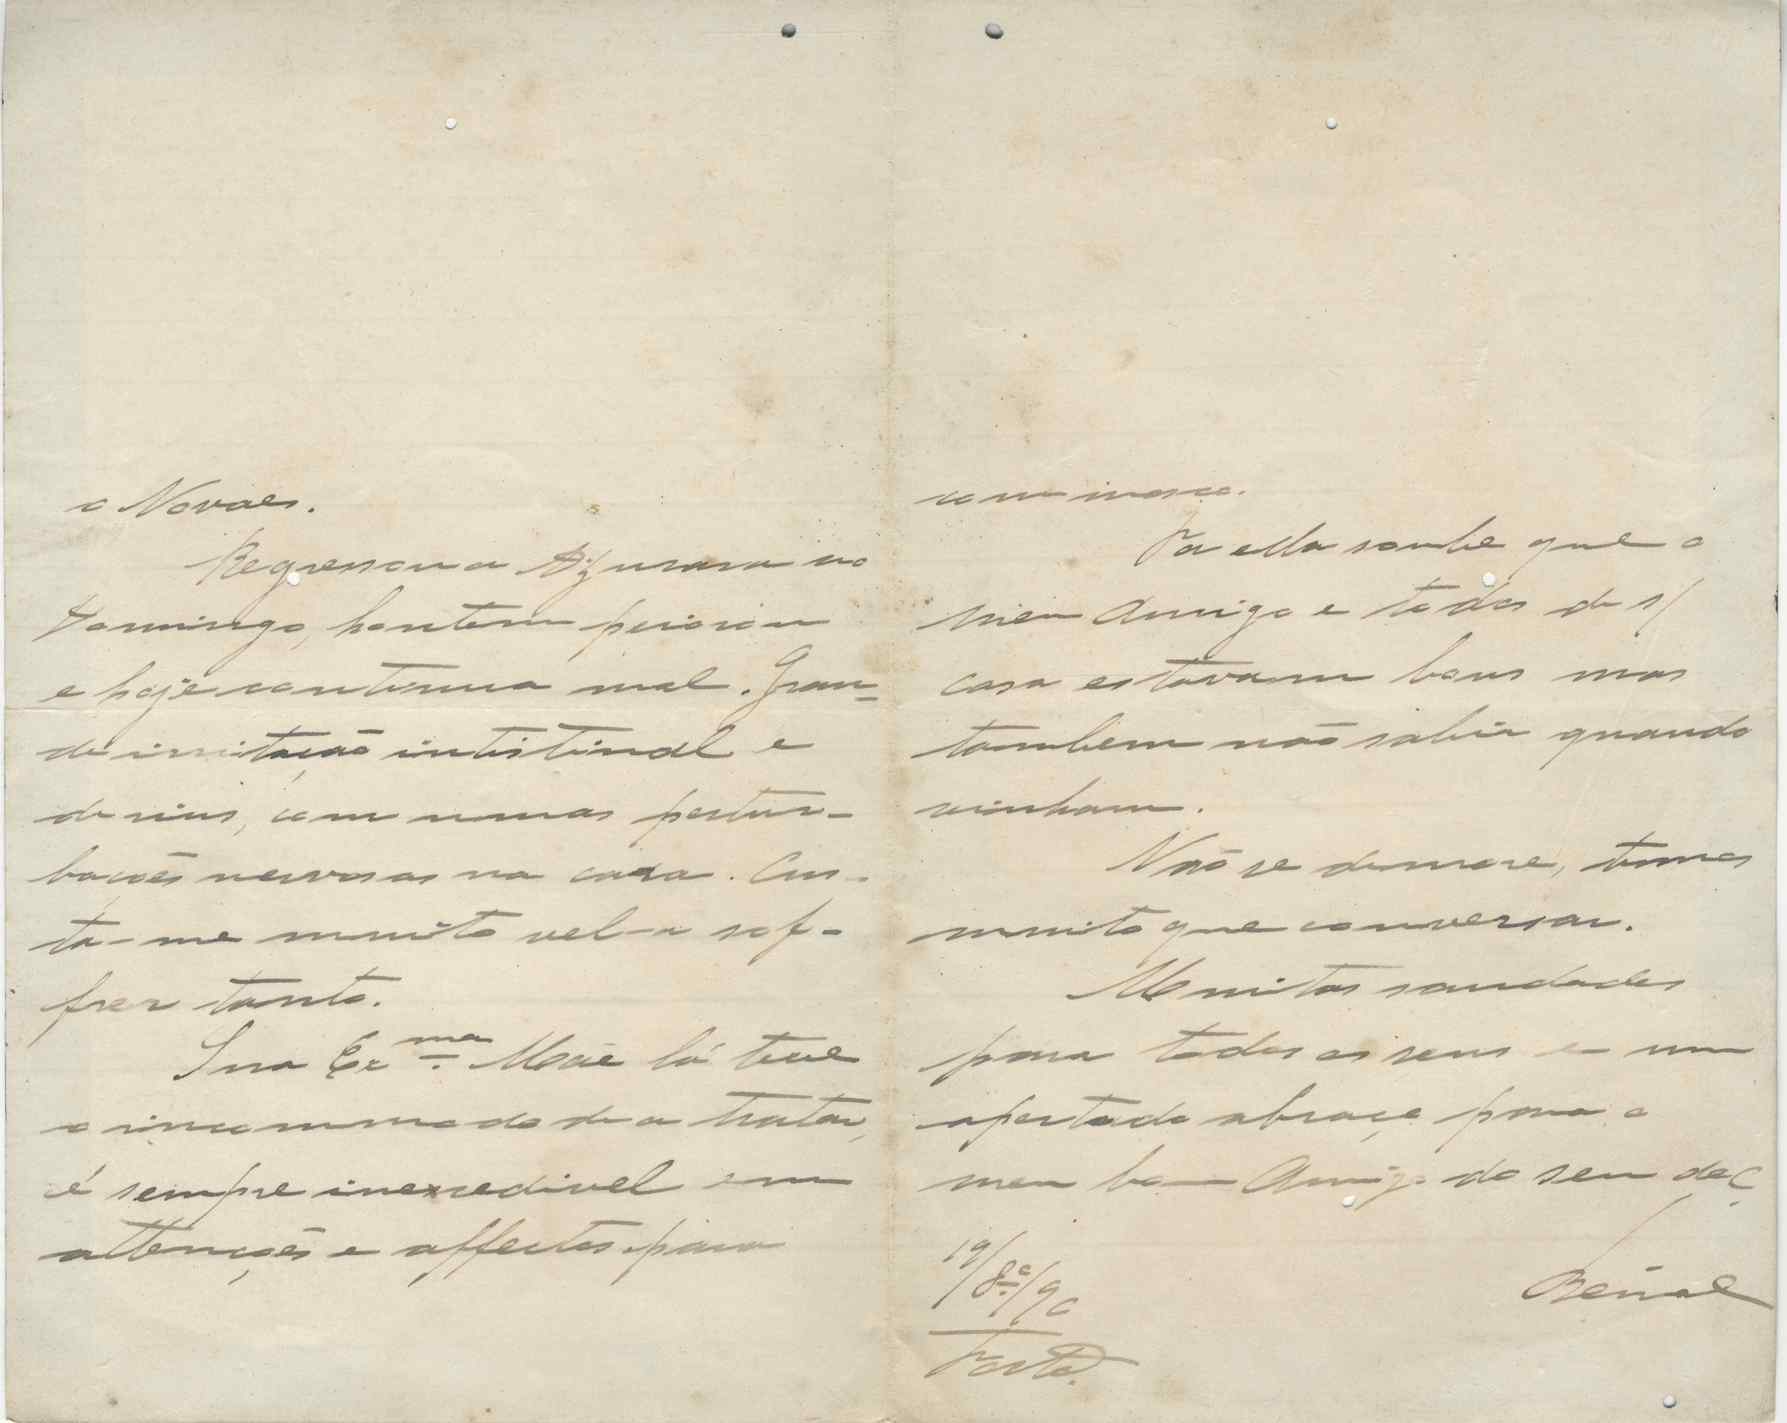 o Novaes.
Regressou a Azurara no
Domingo, hontem peiorou
e hoje continua mal. Gran=
de irritação intistinal e
de rins, com umas pertur-
bações nervosas na cara. Cus-
ta-me muito vel-a sof-
frer tanto.
Sua Ex.ma Mãe lá teve
o incommodo de a tratar,
é sempre inexcedivel em
attenções e affectos para
comnosco.
Por ella soube que o
meu Amigo e todos de s/
casa estavam bons mas
tambem não sabia quando
vinham.
Não se demore, temos
muito que conversar.
Muitas saudades
para todos os seus e um
apertado abraço para o
meu bom Amigo do seu ded.
19/8º/90
Porto.